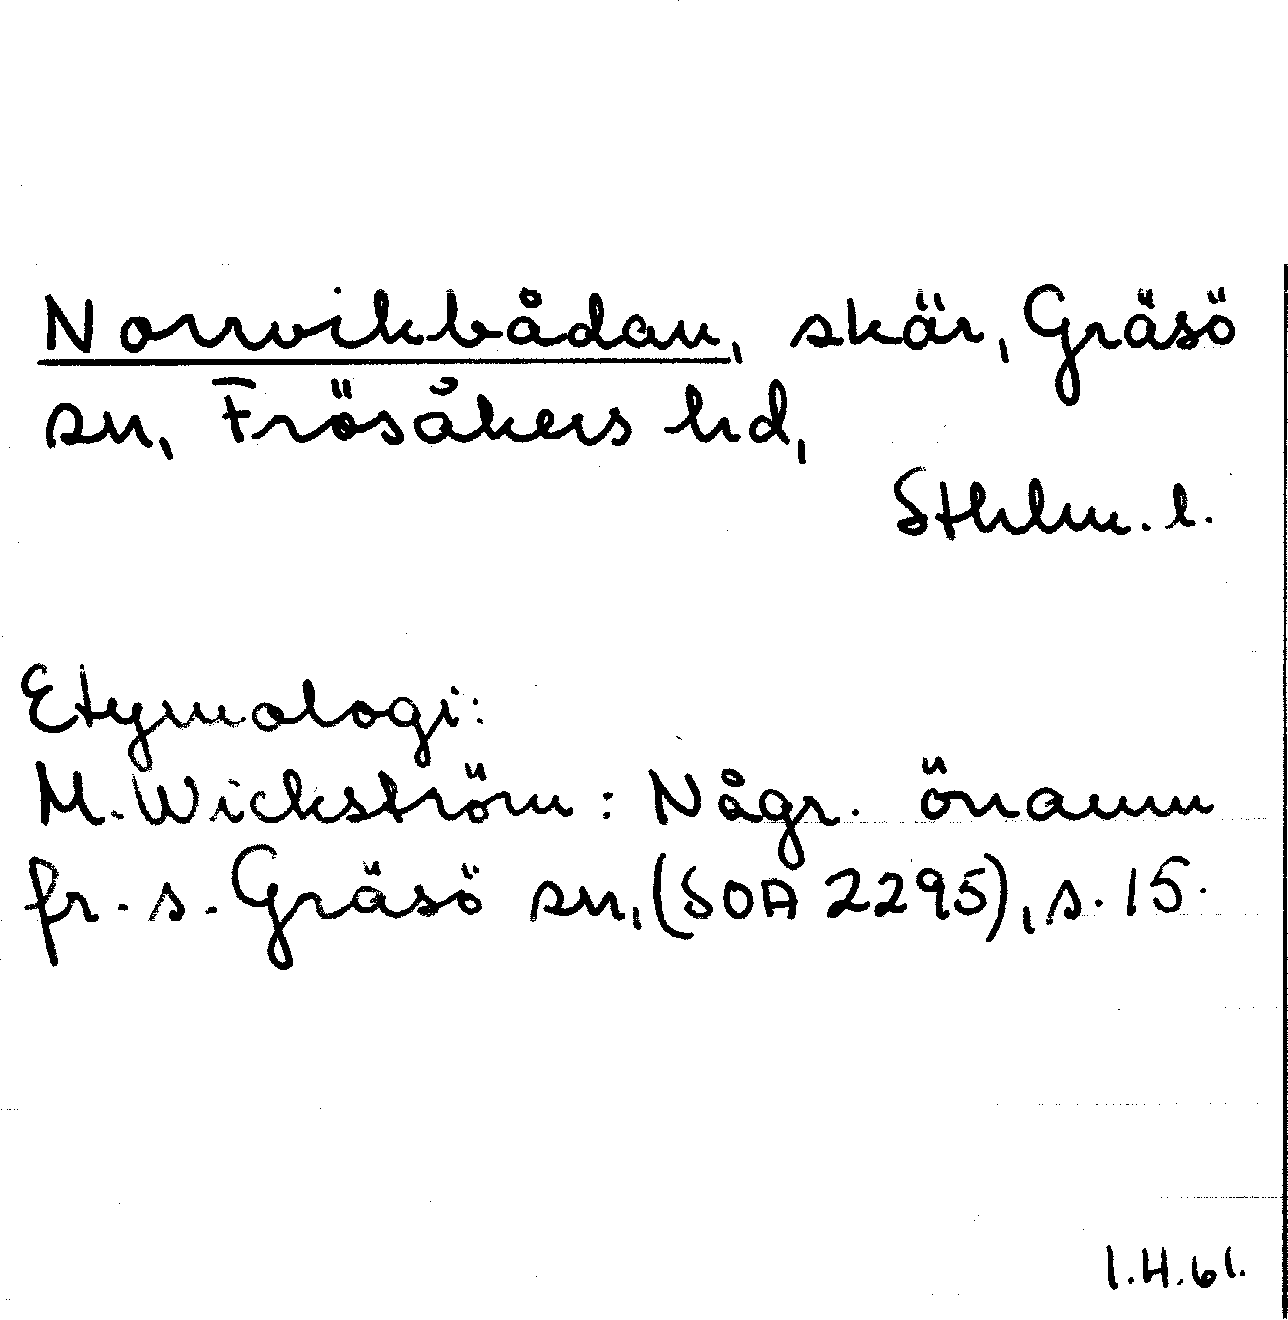 Norrvikbådan, skär, Gräsö
sn, Frösåkers hd,
Sthlm. l.
Etymologi:
M. Wickström: Någr. önamn
fr. s. Gräsö sn, (SOA 2295), s. 15.
I.H.61.